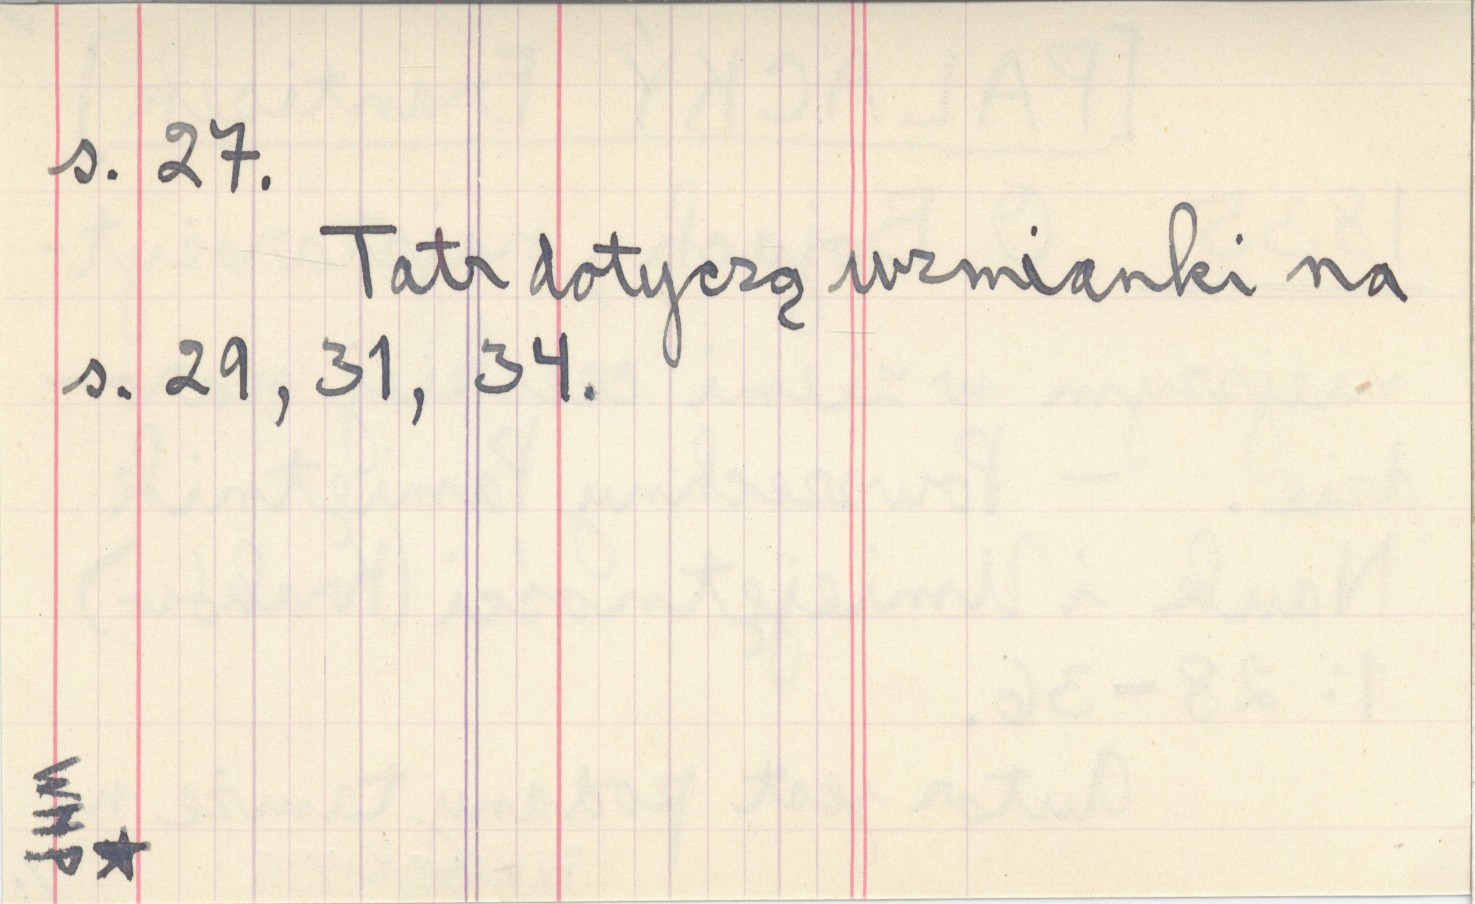 s. 27.
Tatr dotyczą wzmianki na
s. 29, 31, 34.
WNP